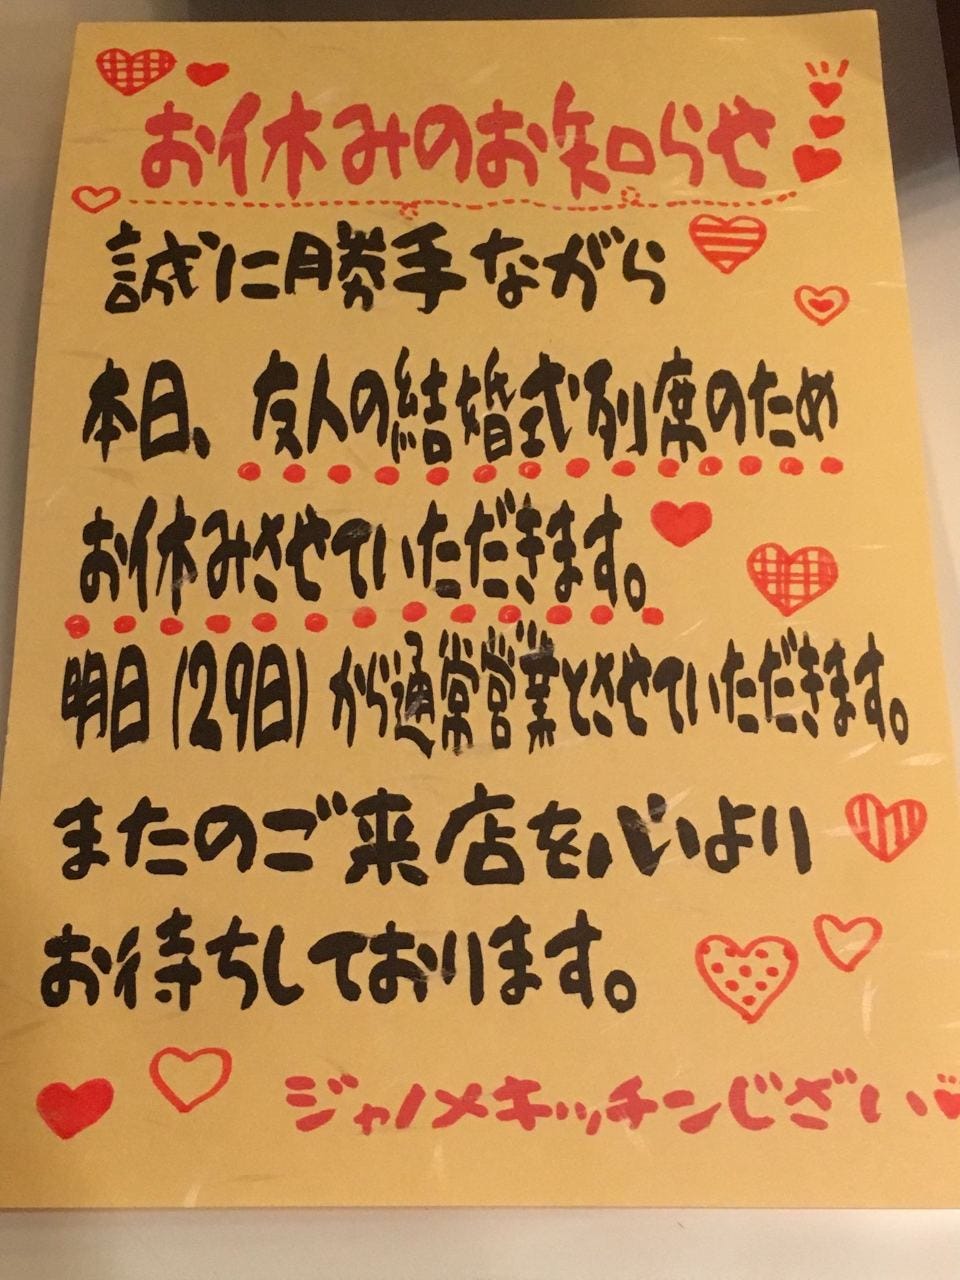 お休みのお知らせ
誠に勝手ながら
本日、友人の結婚式列席のため
お休みさせていただきます。
明日(29日)から通常営業とさせていただきます。
またのご来店を心より
お待ちしております。
ジャノメキッチンじざい